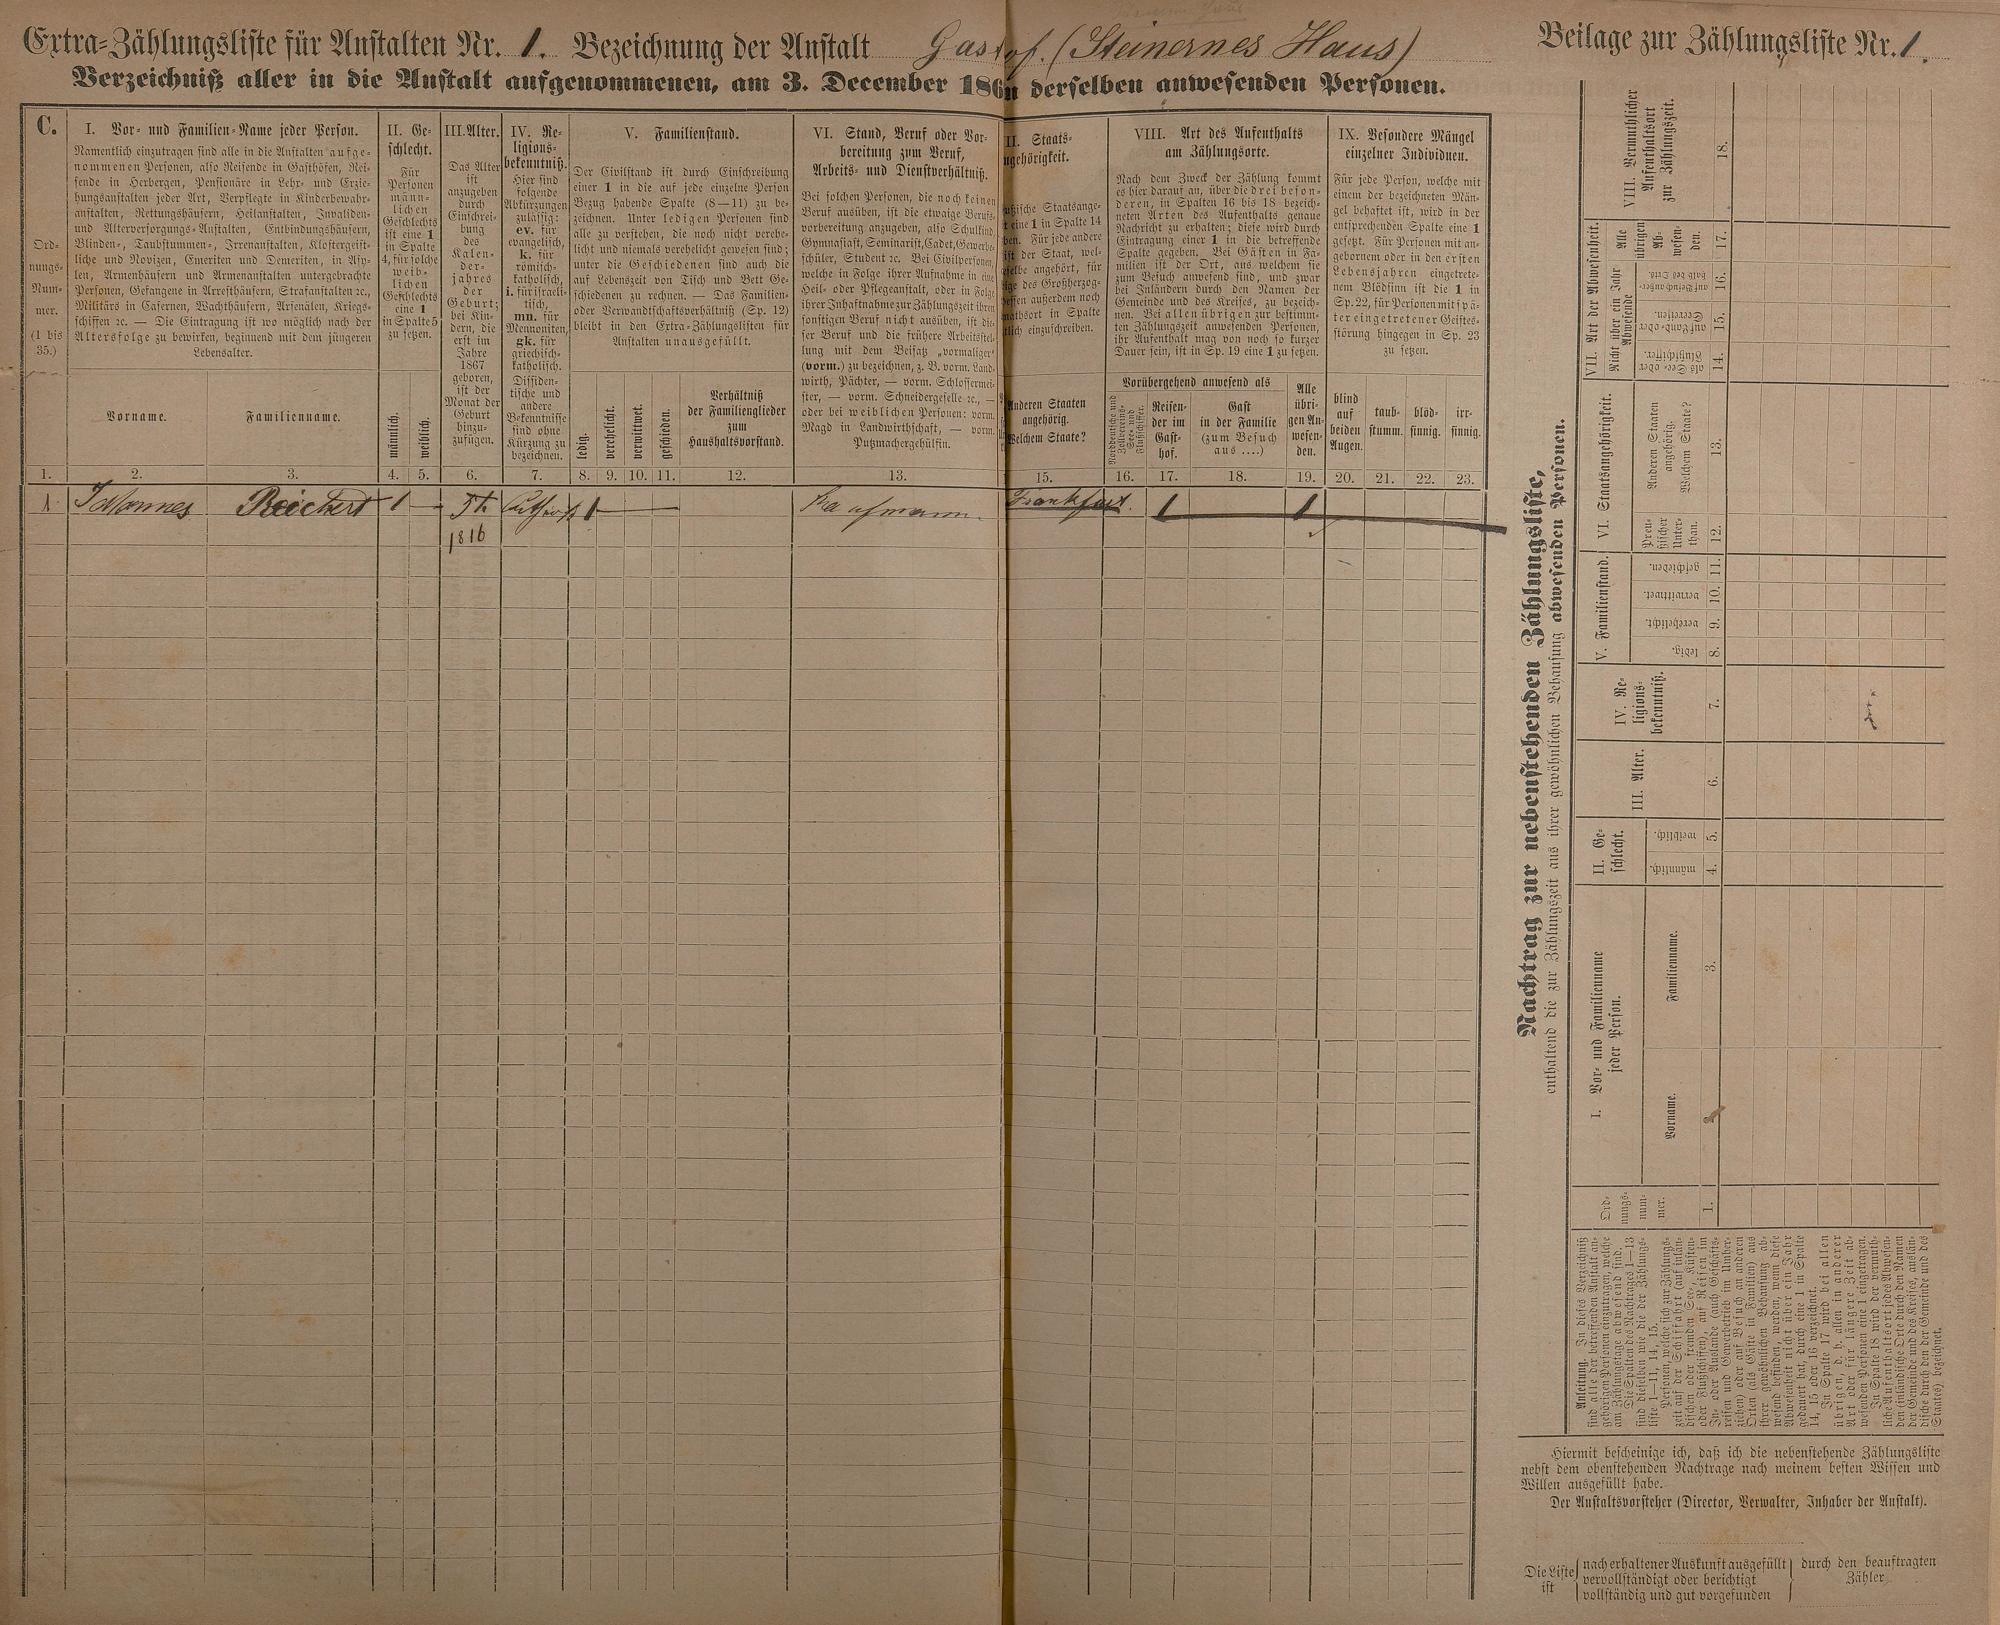 Extra-Zählungsliste für Anstalten Nr. 1. Bezeichnung der Anstalt Gasthof. (Steinernes Haus)
Verzeichniß aller in die Anstalt aufgenommenen, am 3. December 186 derselben anwesenden Personen.
C.
Ord-
nungs-
Num-
mer.
(1 bis
35.)
I. Vor- und Familien-Name jeder Person.
Namentlich einzutragen sind alle in die Anstalten aufge-
nommenen Personen, also Reisende in Gasthöfen, Rei-
sende in Herbergen, Pensionäre in Lehr- und Erzie-
hungsanstalten jeder Art, Verpflegte in Kinderbewahr-
anstalten, Rettungshäusern, Heilanstalten, Invaliden-
und Altersversorgungs-Anstalten, Entbindungshäusern,
Blinden-, Taubstummen-, Irrenanstalten, Klostergeist-
liche und Novizen, Emeriten und Demeriten, in Asy-
len, Armenhäusern und Armenanstalten untergebrachte
Personen, Gefangene in Arresthäusern, Strafanstalten ꝛc.,
Militärs in Casernen, Wachthäusern, Arsenälen, Kriegs-
schiffen ꝛc. — Die Eintragung ist wo möglich nach der
Altersfolge zu bewirken, beginnend mit dem jüngeren
Lebensalter.
Vorname.
Familienname.
II. Ge-
schlecht.
Für
Personen
männ-
lichen
Geschlechts
ist eine 1
in Spalte
4, für solche
weib-
lichen
Geschlechts
eine 1
in Spalte 5
zu setzen.
männlich.
weiblich.
III. Alter.
Das Alter
ist
anzugeben
durch
Einschrei-
bung
des
Kalen-
der-
jahres
der
Geburt;
bei Kin-
dern, die
erst im
Jahre
1867
geboren,
ist der
Monat der
Geburt
hinzu-
zufügen.
IV. Re-
ligions-
bekenntniß.
Hier sind
folgende
Abkürzungen
zulässig:
ev. für
evangelisch,
k. für
römisch-
katholisch,
i. für israeli-
tisch,
mn. für
Mennoniten,
gk. für
griechisch-
katholisch.
Dissiden-
tische und
andere
Bekenntnisse
sind ohne
Kürzung zu
bezeichnen.
V. Familienstand.
Der Civilstand ist durch Einschreibung
einer 1 in die auf jede einzelne Person
Bezug habende Spalte (8—11) zu be-
zeichnen. Unter ledigen Personen sind
alle zu verstehen, die noch nicht verehe-
licht und niemals verehelicht gewesen sind;
unter die Geschiedenen sind auch die
auf Lebenszeit von Tisch und Bett Ge-
schiedenen zu rechnen. — Das Familien-
oder Verwandtschaftsverhältniß (Sp. 12)
bleibt in den Extra-Zählungslisten für
Anstalten unausgefüllt.
ledig.
verehelicht.
verwittwet.
geschieden.
Verhältniß
der Familienglieder
zum
Haushaltsvorstand.
VI. Stand, Beruf oder Vor-
bereitung zum Beruf,
Arbeits- und Dienstverhältniß.
Bei solchen Personen, die noch keinen
Beruf ausüben, ist die etwaige Berufs-
vorbereitung anzugeben, also Schulkind,
Gymnasiast, Seminarist, Cadet, Gewerbe-
schüler, Student ꝛc. Bei Civilpersonen,
welche in Folge ihrer Aufnahme in eine
Heil- oder Pflegeanstalt, oder in Folge
ihrer Inhaftnahme zur Zählungszeit ihren
sonstigen Beruf nicht ausüben, ist die-
ser Beruf und die frühere Arbeitsstel-
lung mit dem Beisatz „vormaliger“
(vorm.) zu bezeichnen, z. B. vorm. Land-
wirth, Pächter, — vorm. Schlossermei-
ster, — vorm. Schneidergeselle ꝛc., —
oder bei weiblichen Personen: vorm.
Magd in Landwirthschaft, — vorm.
Putzmachergehülfin.
II. Staats-
ngehörigkeit.
ußische Staatsange-
t eine 1 in Spalte 14
ben. Für jede andere
ist der Staat, wel-
selbe angehört, für
ige des Großherzog-
essen außerdem noch
mathsort in Spalte
tlich einzuschreiben.
Anderen Staaten
angehörig.
Welchem Staate?
VIII. Art des Aufenthalts
am Zählungsorte.
Nach dem Zweck der Zählung kommt
es hier darauf an, über die drei beson-
deren, in Spalten 16 bis 18 bezeich-
neten Arten des Aufenthalts genaue
Nachricht zu erhalten; diese wird durch
Eintragung einer 1 in die betreffende
Spalte gegeben. Bei Gästen in Fa-
milien ist der Ort, aus welchem sie
zum Besuch anwesend sind, und zwar
bei Inländern durch den Namen der
Gemeinde und des Kreises, zu bezeich-
nen. Bei allen übrigen zur bestimm-
ten Zählungszeit anwesenden Personen,
ihr Aufenthalt mag von noch so kurzer
Dauer sein, ist in Sp. 19 eine 1 zu setzen.
Vorübergehend anwesend als
Norddeutsche und
Zollvereins-
See- und
Flußschiffer.
Reisen-
der im
Gast-
hof.
Gast
in der Familie
(zum Besuch
aus ....)
Alle
übri-
gen An-
wesen-
den.
IX. Besondere Mängel
einzelner Individuen.
Für jede Person, welche mit
einem der bezeichneten Män-
gel behaftet ist, wird in der
entsprechenden Spalte eine 1
gesetzt. Für Personen mit an-
gebornem oder in den ersten
Lebensjahren eingetrete-
nem Blödsinn ist die 1 in
Sp. 22, für Personen mit spä-
ter eingetretener Geistes-
störung hingegen in Sp. 23
zu setzen.
blind
auf
beiden
Augen.
taub-
stumm.
blöd-
sinnig.
irr-
sinnig.
1. 2. 3. 4. 5. 6. 7. 8. 9. 10. 11. 12. 13. 15. 16. 17. 18. 19. 20. 21. 22. 23.
1 Johannes Reichert 1 — Kaufmann. Frankfurt. 1 1
1816
Beilage zur Zählungsliste Nr. 1.
Nachtrag zur nebenstehenden Zählungsliste,
enthaltend die zur Zählungszeit aus ihrer gewöhnlichen Behausung abwesenden Personen.
Anleitung. In dieses Verzeichniß
sind alle der betreffenden Anstalt an-
gehörigen Personen einzutragen, welche
am Zählungstage abwesend sind.
Die Spalten des Nachtrages 1—13
sind dieselben wie die der Zählungs-
liste 1—11, 14, 15.
Personen, welche sich zur Zählungs-
zeit auf der Schiffahrt (auf inlän-
dischen oder fremden See-, Küsten-
oder Flußschiffen), auf Reisen im
In- oder Auslande (auch Geschäfts-
reisen und Gewerbetrieb im Umher-
ziehen) oder auf Besuch an anderen
Orten (als Gäste in Familien) aus
ihrer gewöhnlichen Behausung ab-
wesend befinden, werden, wenn diese
Abwesenheit nicht über ein Jahr
gedauert hat, durch eine 1 in Spalte
14, 15 oder 16 verzeichnet.
In Spalte 17 wird bei allen
übrigen, d. h. allen in anderer
Art oder für längere Zeit ab-
wesenden Personen eine 1 eingetragen.
In Spalte 18 wird der vermuth-
liche Aufenthaltsort jedes Abwesen-
den (inländische Orte durch den Namen
der Gemeinde und des Kreises, auslän-
dische durch den der Gemeinde und des
Staates) bezeichnet.
Ord-
nungs-
num-
mer.
I. Vor- und Familienname
jeder Person.
Vorname.
Familienname.
II. Ge-
schlecht.
männlich.
weiblich.
III. Alter.
IV. Re-
ligions-
bekenntniß.
V. Familienstand.
ledig.
verehelicht.
verwittwet.
geschieden.
VI. Staatsangehörigkeit.
Preu-
ßischer
Unter-
than.
Anderen Staaten
angehörig.
Welchem Staate?
VII. Art der Abwesenheit.
Nicht über ein Jahr
Abwesende
als See- oder
Flußschiffer.
auf Land- oder
Seereisen.
auf Besuch außer-
halb des Orts.
Alle
übrigen
Ab-
wesen-
den.
VIII. Vermuthlicher
Aufenthaltsort
zur Zählungszeit.
1. 3. 4. 5. 6. 7. 8. 9. 10. 11. 12. 13. 14. 15. 16. 17. 18.
Hiermit bescheinige ich, daß ich die nebenstehende Zählungsliste
nebst dem obenstehenden Nachtrage nach meinem besten Wissen und
Willen ausgefüllt habe.
Der Anstaltsvorsteher (Director, Verwalter, Inhaber der Anstalt).
Die Liste ist
nach erhaltener Auskunft ausgefüllt
vervollständigt oder berichtigt
vollständig und gut vorgefunden
durch den beauftragten
Zähler